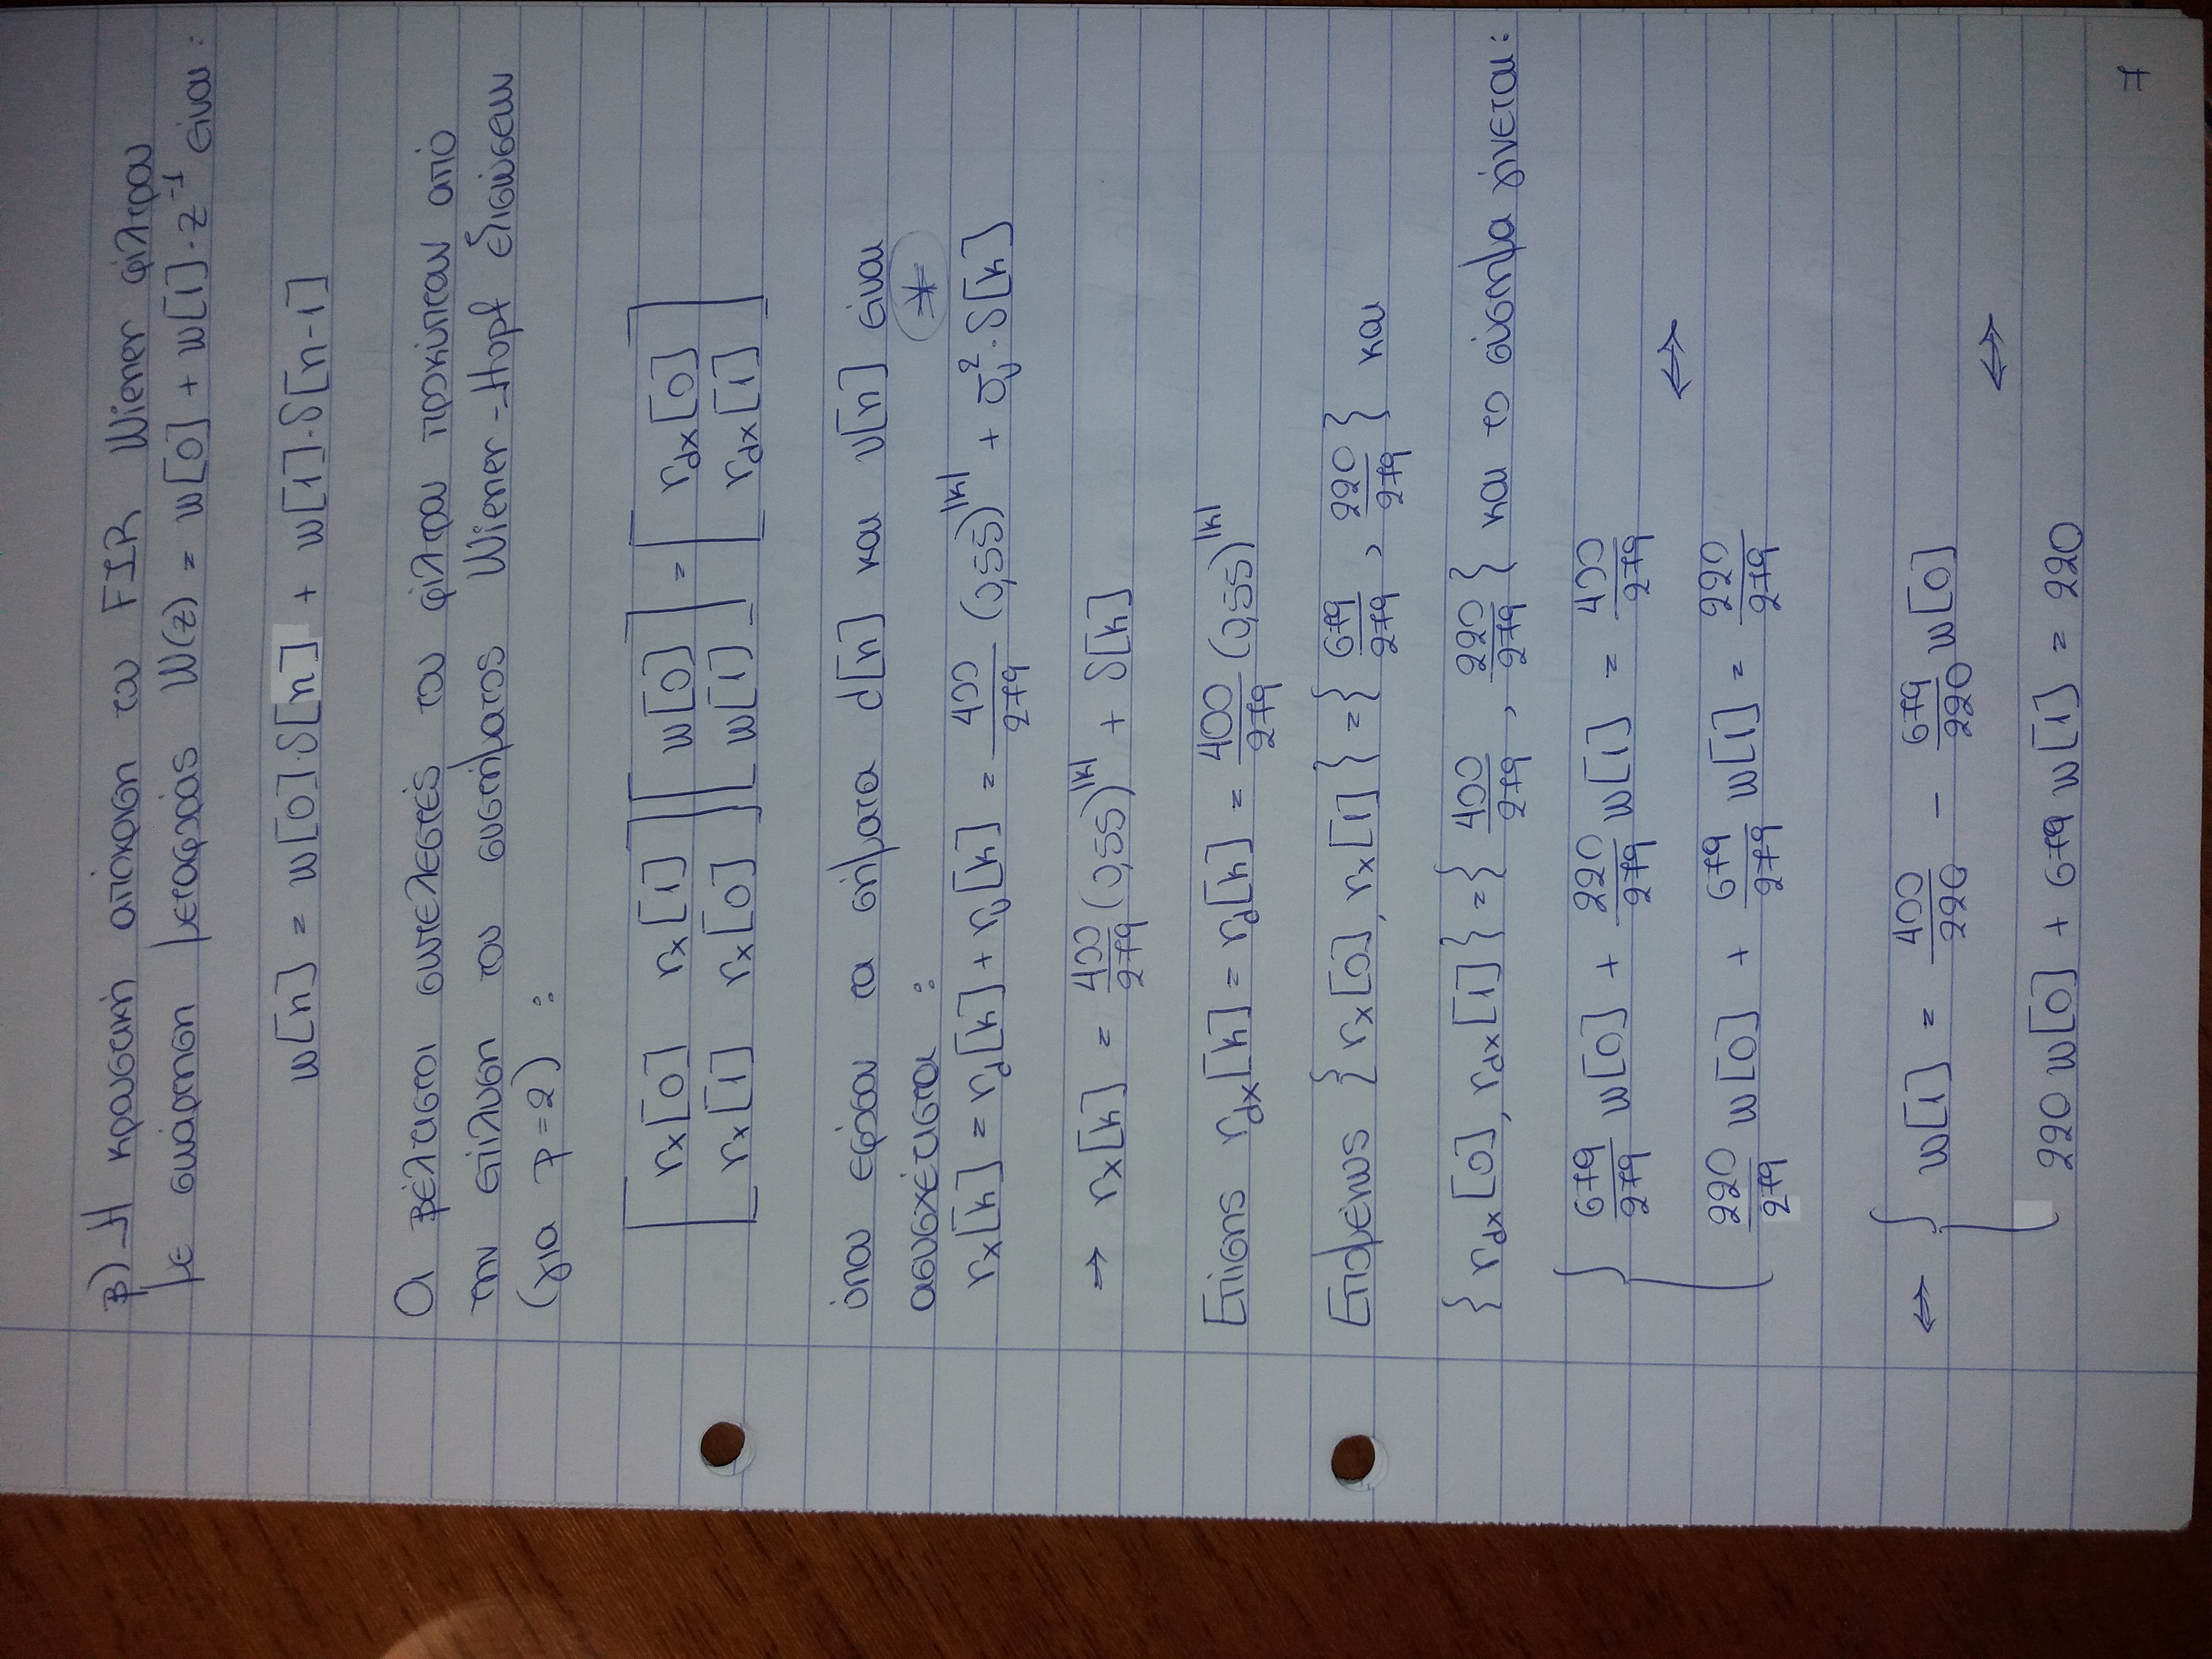 β) Η κρουστική απόκριση του FIR Wiener φίλτρου
με συνάρτηση μεταφοράς W(z) = w[0] + w[1]·z⁻¹ είναι:
w[n] = w[0]·δ[n] + w[1]·δ[n-1]
Οι βέλτιστοι συντελεστές του φίλτρου προκύπτουν από
την επίλυση του συστήματος Wiener-Hopf εξισώσεων
(για p=2) :
[ rx[0] rx[1] ] [ w[0] ] = [ rdx[0] ]
[ rx[1] rx[0] ] [ w[1] ] [ rdx[1] ]
όπου εφόσον τα σήματα d[n] και υ[n] είναι
ασυσχέτιστα : *
rx[k] = rd[k] + rυ[k] = 400/279 (0,55)^|k| + συ²·δ[k]
→ rx[k] = 400/279 (0,55)^|k| + δ[k]
Επίσης rdx[k] = rd[k] = 400/279 (0,55)^|k|
Επομένως { rx[0], rx[1] } = { 679/279 , 220/279 } και
{ rdx[0], rdx[1] } = { 400/279 , 220/279 } και το σύστημα γίνεται:
{ 679/279 w[0] + 220/279 w[1] = 400/279
⇔
220/279 w[0] + 679/279 w[1] = 220/279
⇔ { w[1] = 400/220 - 679/220 w[0]
⇔
220 w[0] + 679 w[1] = 220
7